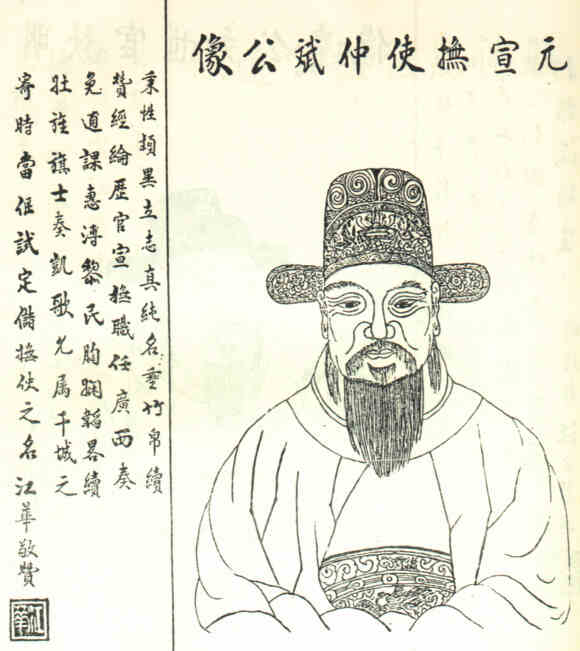 元宣撫使仲斌公像
秉性頴異立志真純名垂竹帛績
贊經綸歷官宣撫職任廣西奏
免逋課惠溥黎民胸嫻韜畧績
壯旌旗士奏凱歌允属干城元
寄時當試定儲撫使之名 江華敬贊
江華